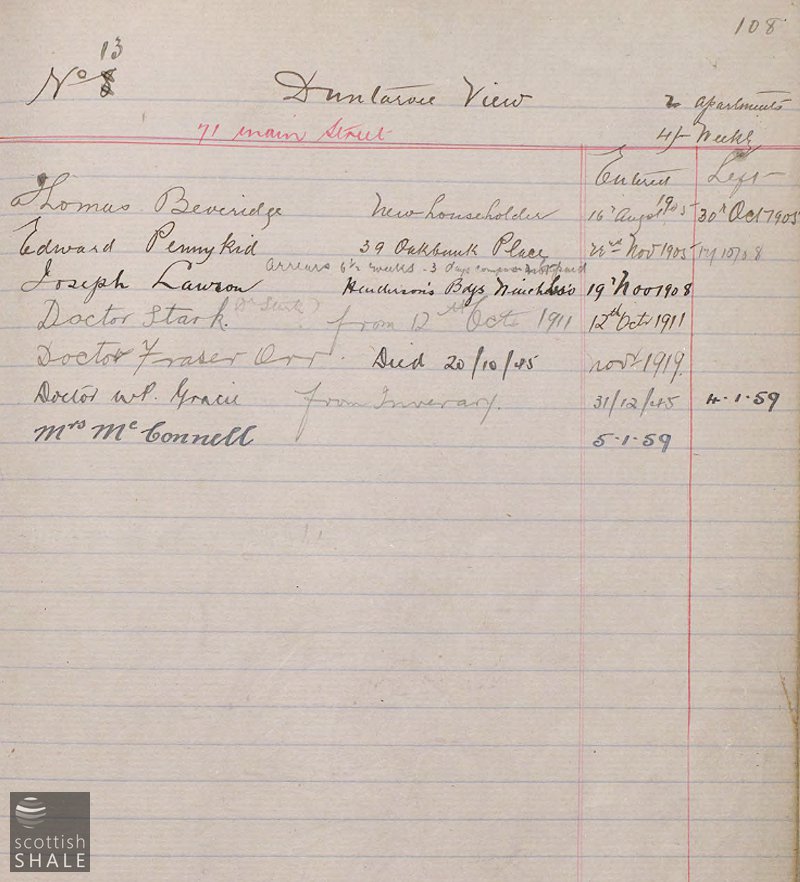 108
13
No 8 Duntarvie View 2 apartments
71 main Street 4/- Weekly
Entered Left
Thomas Beveridge New householder 16th Augst 1905 30th Oct 1905
Edward Pennykid 39 Oakbank Place 22nd Nov 1905 17/10/08
arrears 6½ weeks 3 days paid
Joseph Lawson Henderson's Bdgs Winchbro 19th Nov 1908
(Dr Stark)
Doctor Stark. from 12th Oct 1911 12th Oct 1911
Doctor Fraser Orr. Died 20/10/45 1919.
Doctor W.P. Gracie from Inverary. 31/12/45 4.1.59
Mrs McConnell 5.1.59
scottish
SHALE